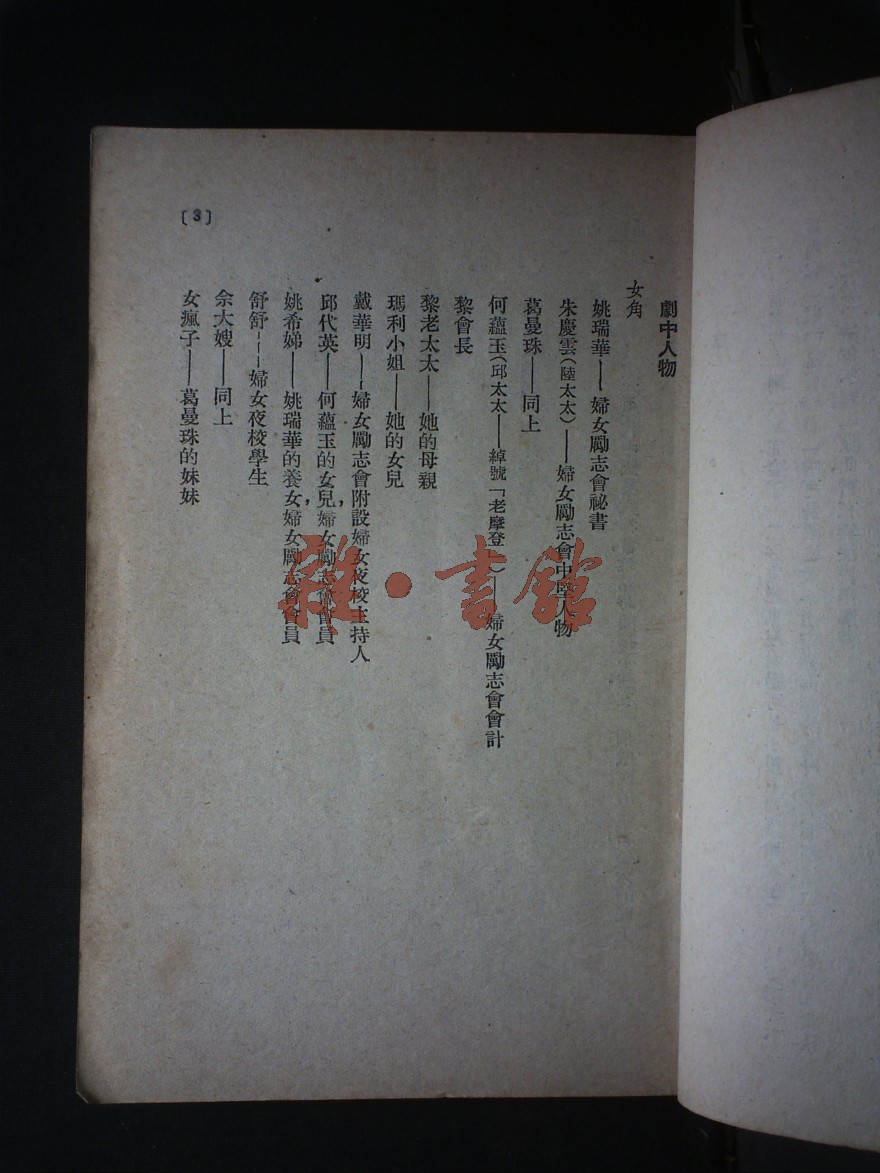 劇中人物
女角
姚瑞華——婦女勵志會祕書
朱慶雲（陸太太）——婦女勵志會中堅人物
葛曼珠——同上
何蘊玉（邱太太——綽號「老摩登」）——婦女勵志會會計
黎會長
黎老太太——她的母親
瑪利小姐——她的女兒
戴華明——婦女勵志會附設婦女夜校主持人
邱代英——何蘊玉的女兒，婦女勵志會會員
姚希娣——姚瑞華的養女，婦女勵志會會員
舒舒———婦女夜校學生
佘大嫂——同上
女瘋子——葛曼珠的妹妹
〔3〕
雜·書館